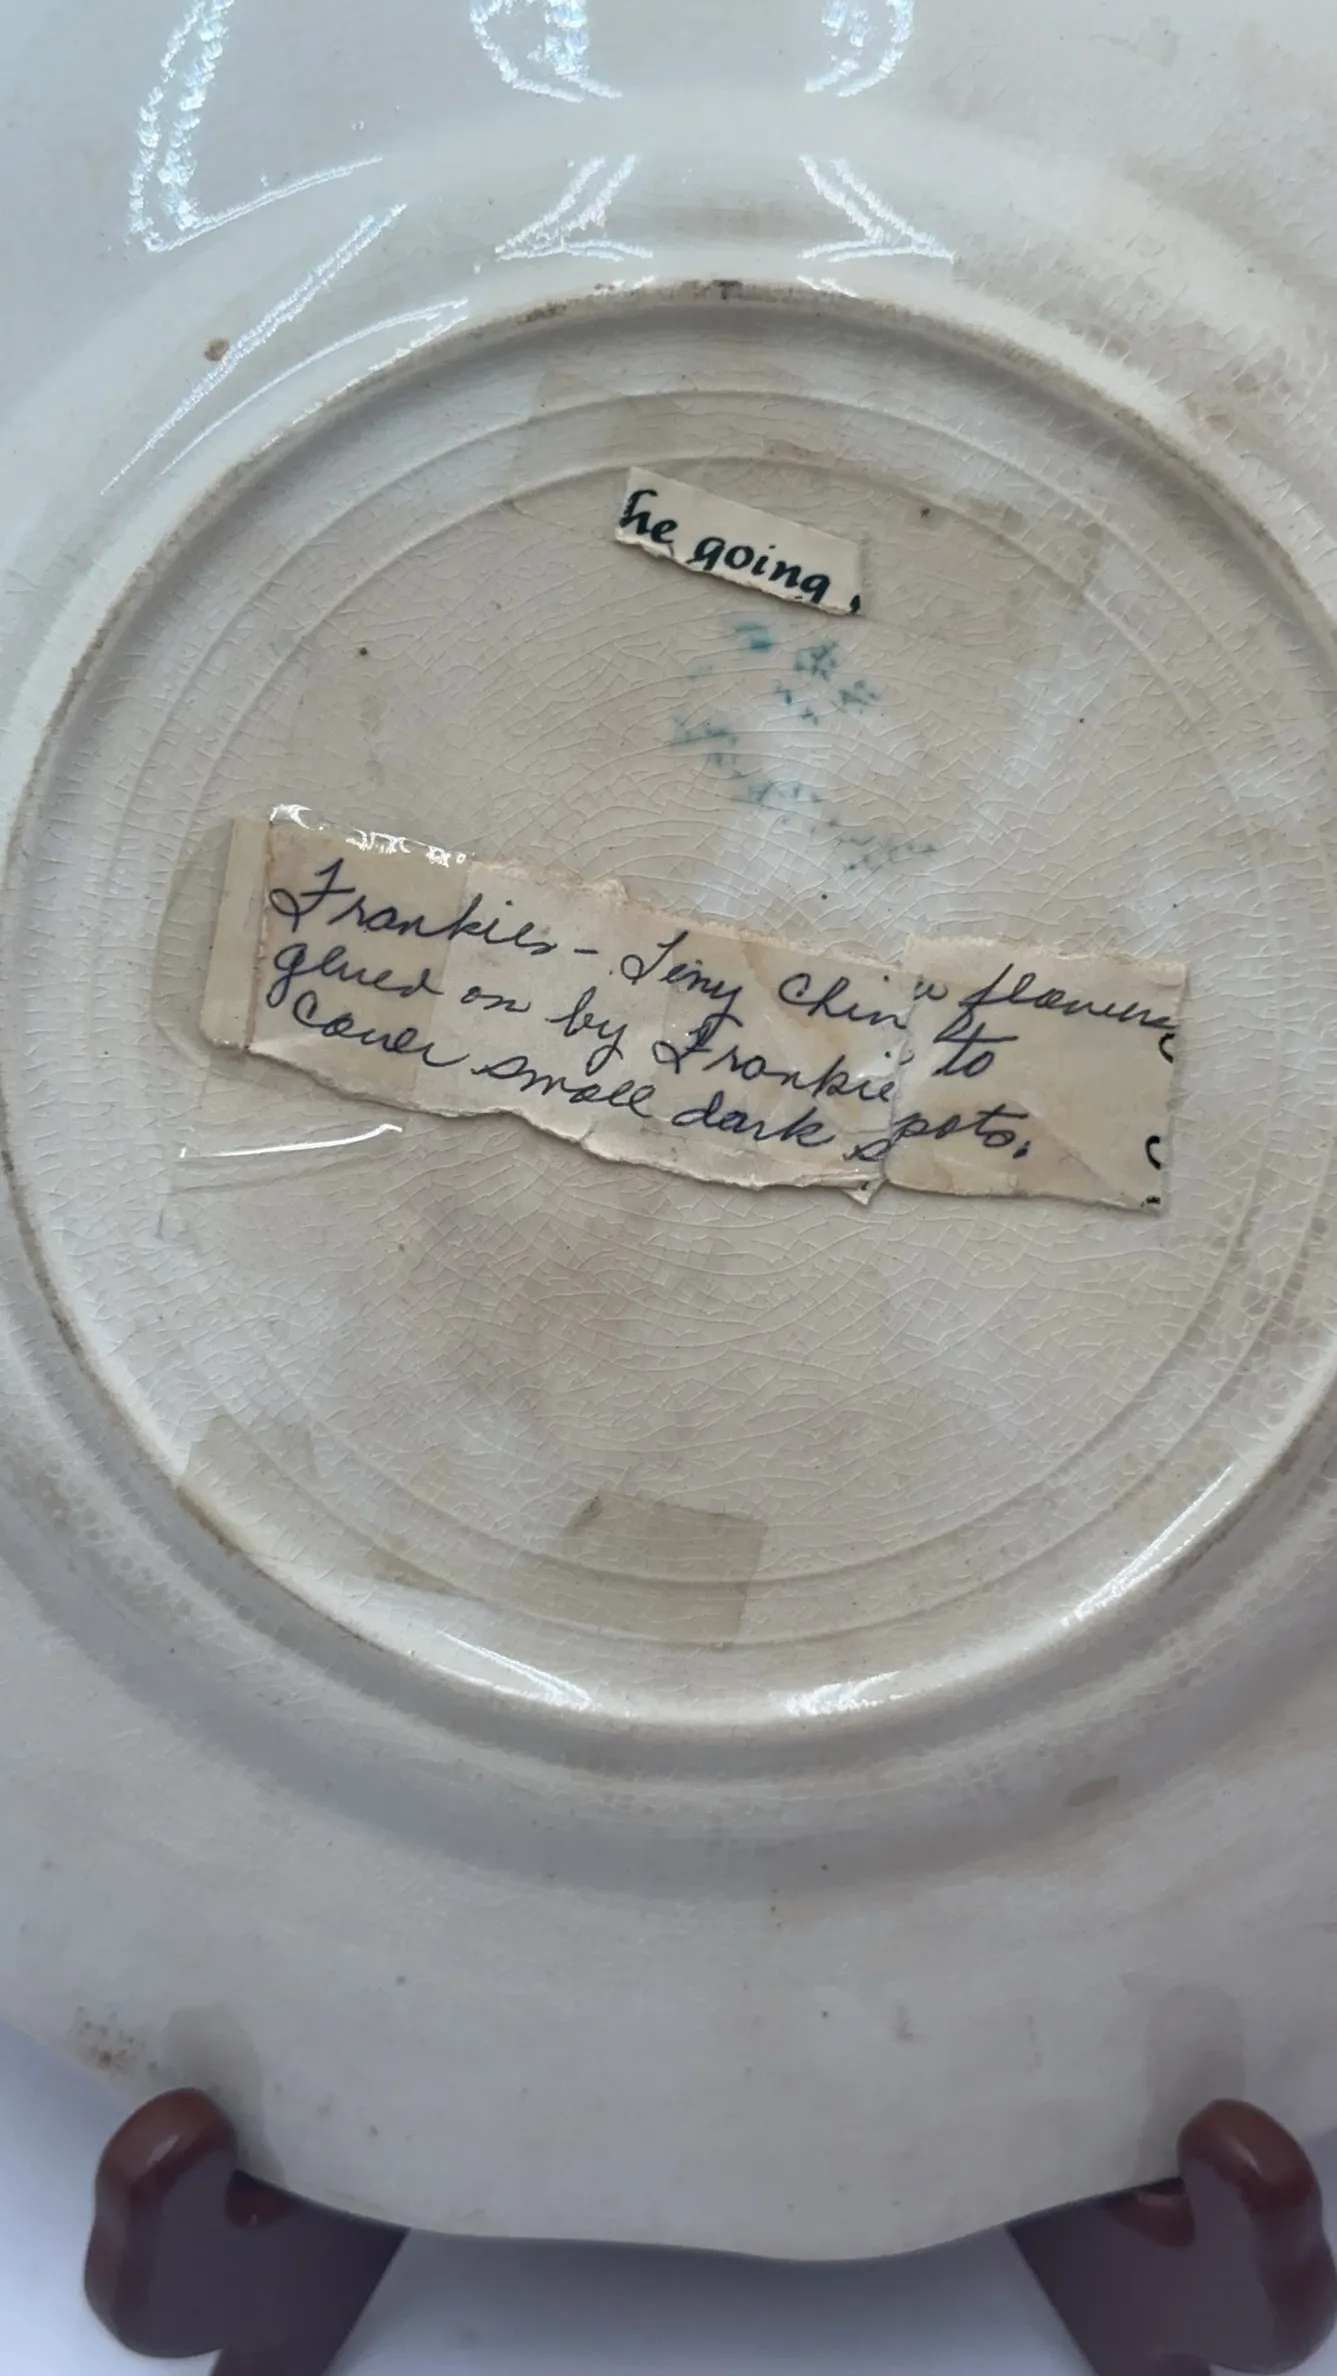 he going,
Frankies - Tiny China flowers
glued on by Frankie to
cover small dark spots.